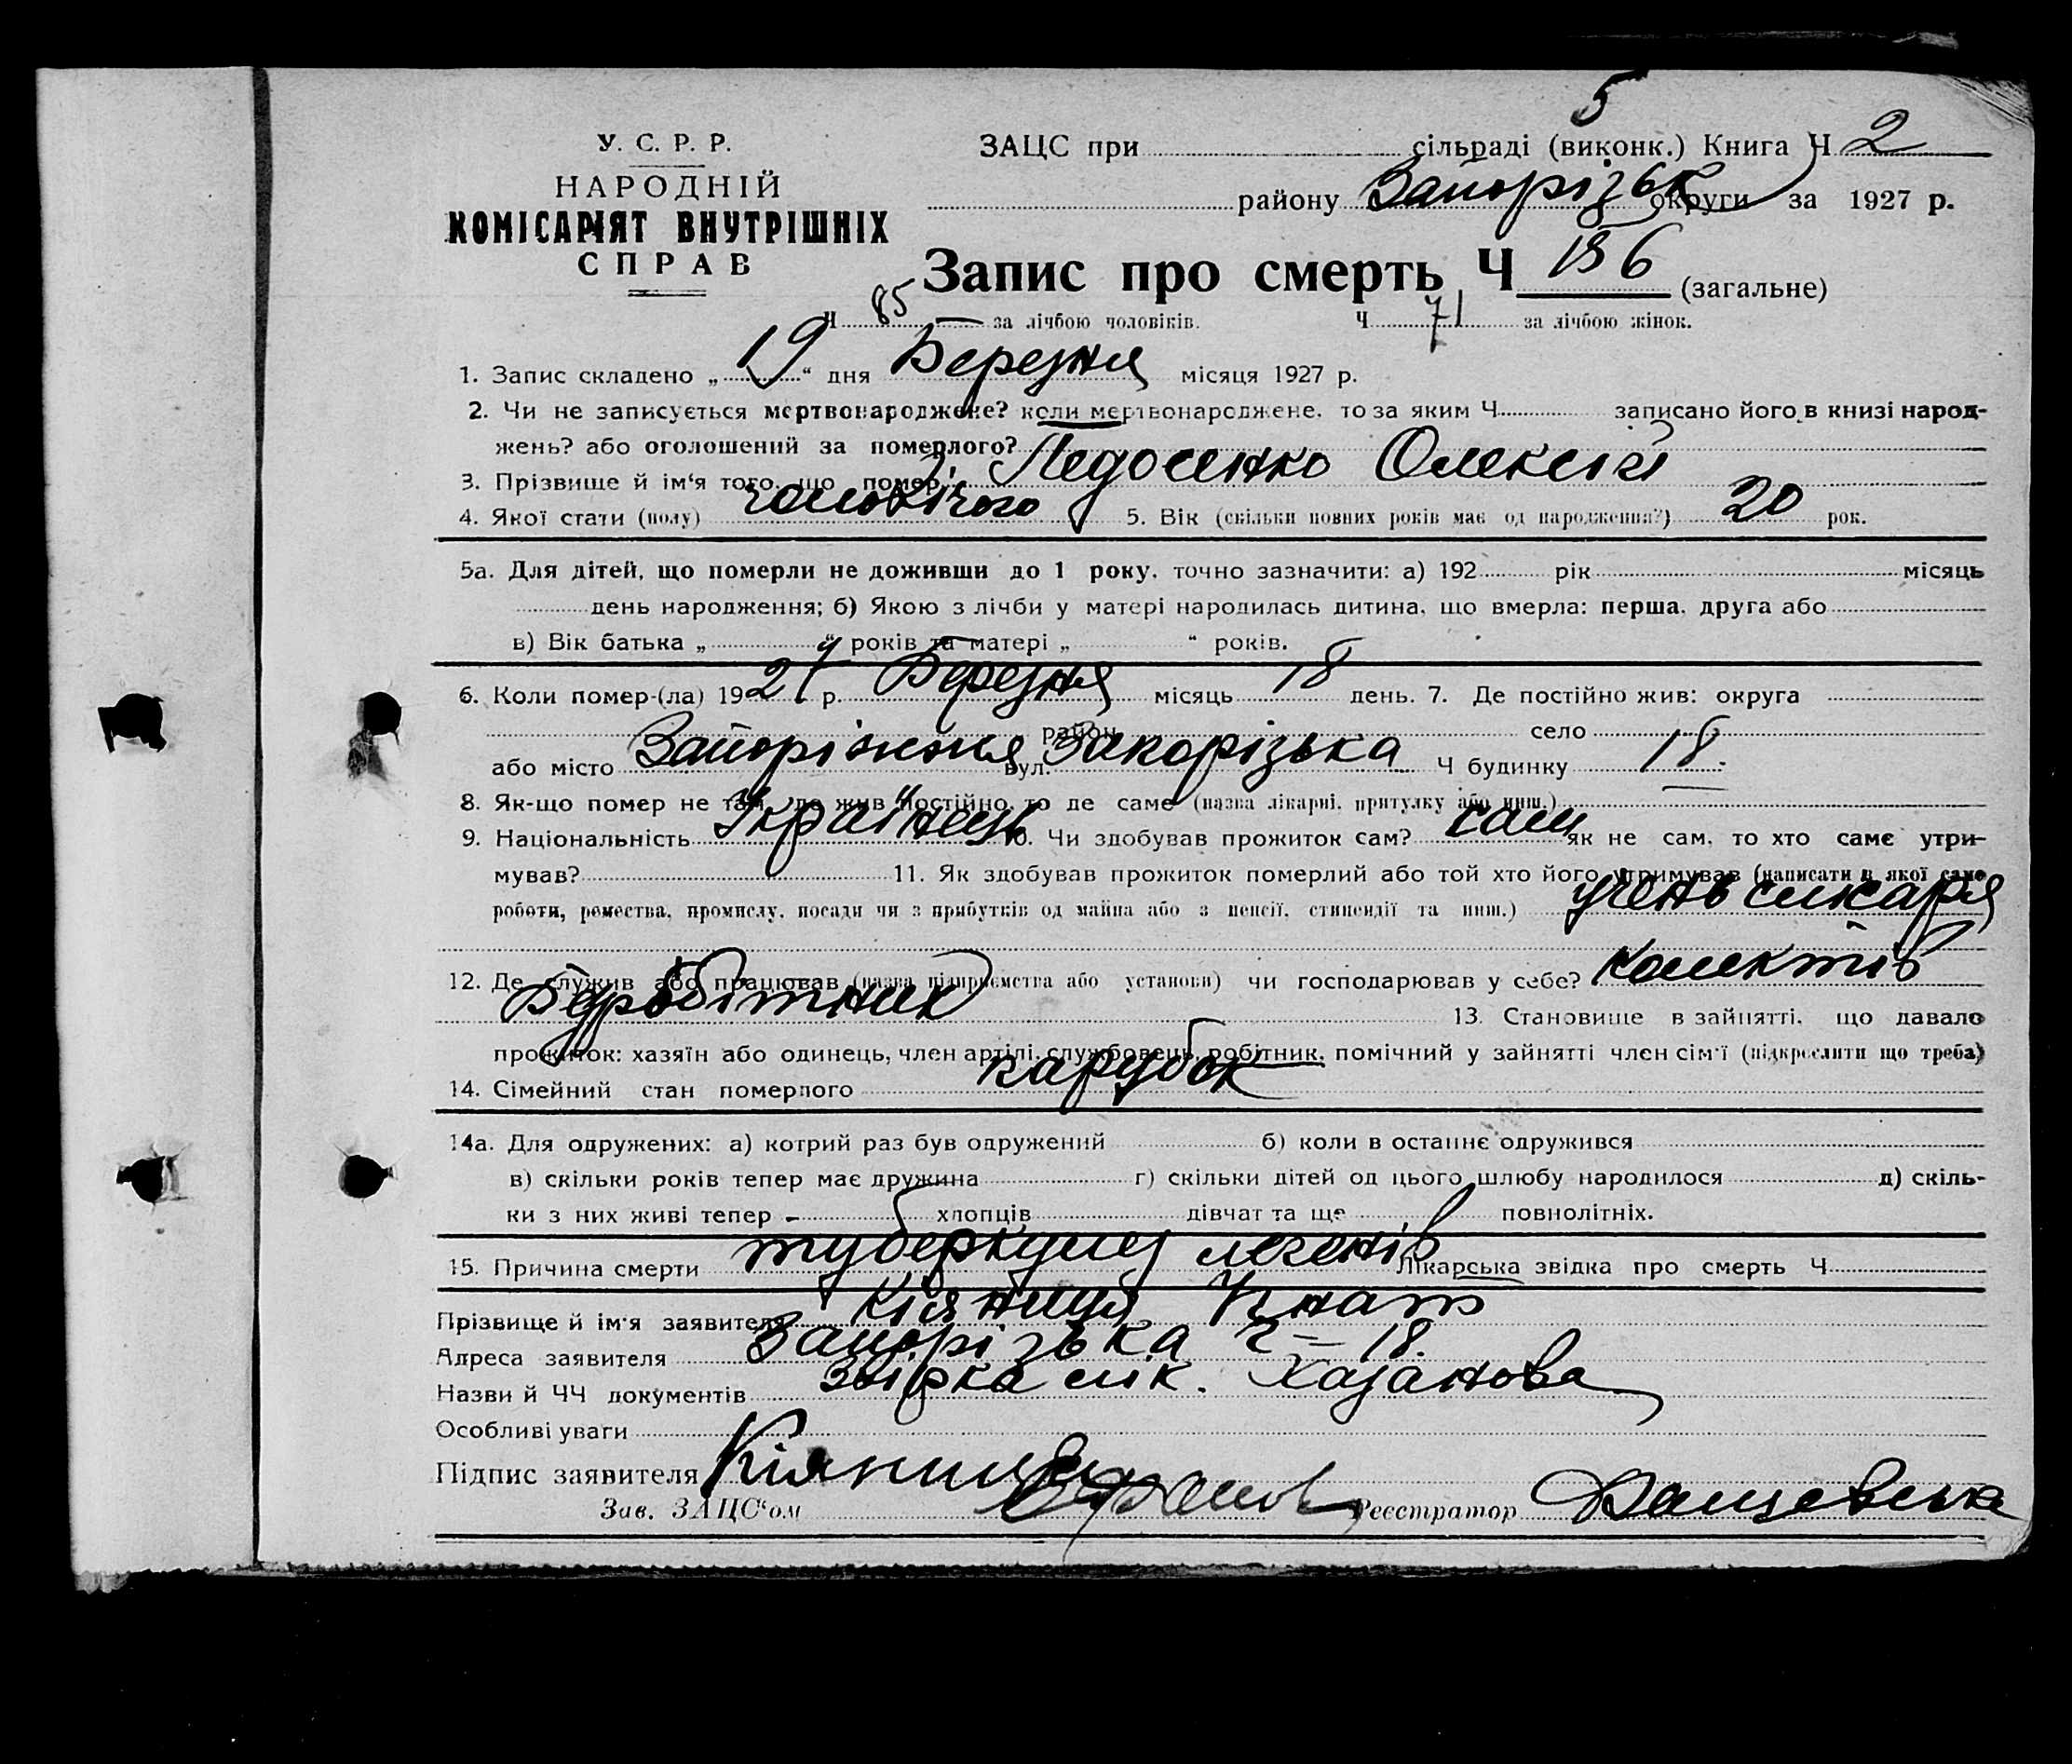 5
У. С. Р. Р.
НАРОДНІЙ
КОМІСАРІЯТ ВНУТРІШНІХ
СПРАВ
ЗАЦС при сільраді (виконк.) Книга Ч 2
району Запорізьк округи за 1927 р.
Запис про смерть Ч 156 (загальне)
Ч 85 за лічбою чоловіків. Ч 71 за лічбою жінок.
1. Запис складено „ 19 “ дня Березня місяця 1927 р.
2. Чи не записується мертвонароджене? коли мертвонароджене, то за яким Ч записано його в книзі народ-
жень? або оголошений за померлого?
3. Прізвище й ім‘я того, що помер Педосенко Олексій
4. Якої стати (полу) чоловічого 5. Вік (скільки повних років має од народження?) 20 рок.
5а. Для дітей, що померли не доживши до 1 року, точно зазначити: а) 192 рік місяць
день народження; б) Якою з лічби у матері народилась дитина, що вмерла: перша, друга або
в) Вік батька „ “ років та матері „ “ років.
6. Коли помер-(ла) 1927 р. Березня місяць 18 день. 7. Де постійно жив: округа
район село
або місто Запоріжжя вул. Запорізька Ч будинку 18.
8. Як-що помер не там, де жив постійно, то де саме (назва лікарні, притулку або инш.)
9. Національність Українець 10. Чи здобував прожиток сам? сам як не сам, то хто саме утри-
мував? 11. Як здобував прожиток померлий або той хто його утримував (написати в якої саме
роботи, ремества, промислу, посади чи з прибутків од майна або з пенсії, стипендії та инш.) учень слюсаря
12. Де служив або працював (назва підприємства або установи) чи господарював у себе? Колектів
Безробітних 13. Становище в зайнятті, що давало
прожиток: хазяїн або одинець, член артілі, службовець, робітник, помічний у зайнятті член сім‘ї (підкреслити що треба)
14. Сімейний стан померлого парубок
14а. Для одружених: а) котрий раз був одружений б) коли в останнє одружився
в) скільки років тепер має дружина г) скільки дітей од цього шлюбу народилося д) скіль-
ки з них живі тепер - хлопців дівчат та ще повнолітніх.
15. Причина смерти туберкульоз легенів Лікарська звідка про смерть Ч
Прізвище й ім‘я заявителя Кіяниця Гнат
Адреса заявителя Запорізька Ч – 18.
Назви й ЧЧ документів Звідка лік. Хазанова
Особливі уваги
Підпис заявителя Кіяниця
Зав. ЗАЦС‘ом Реєстратор